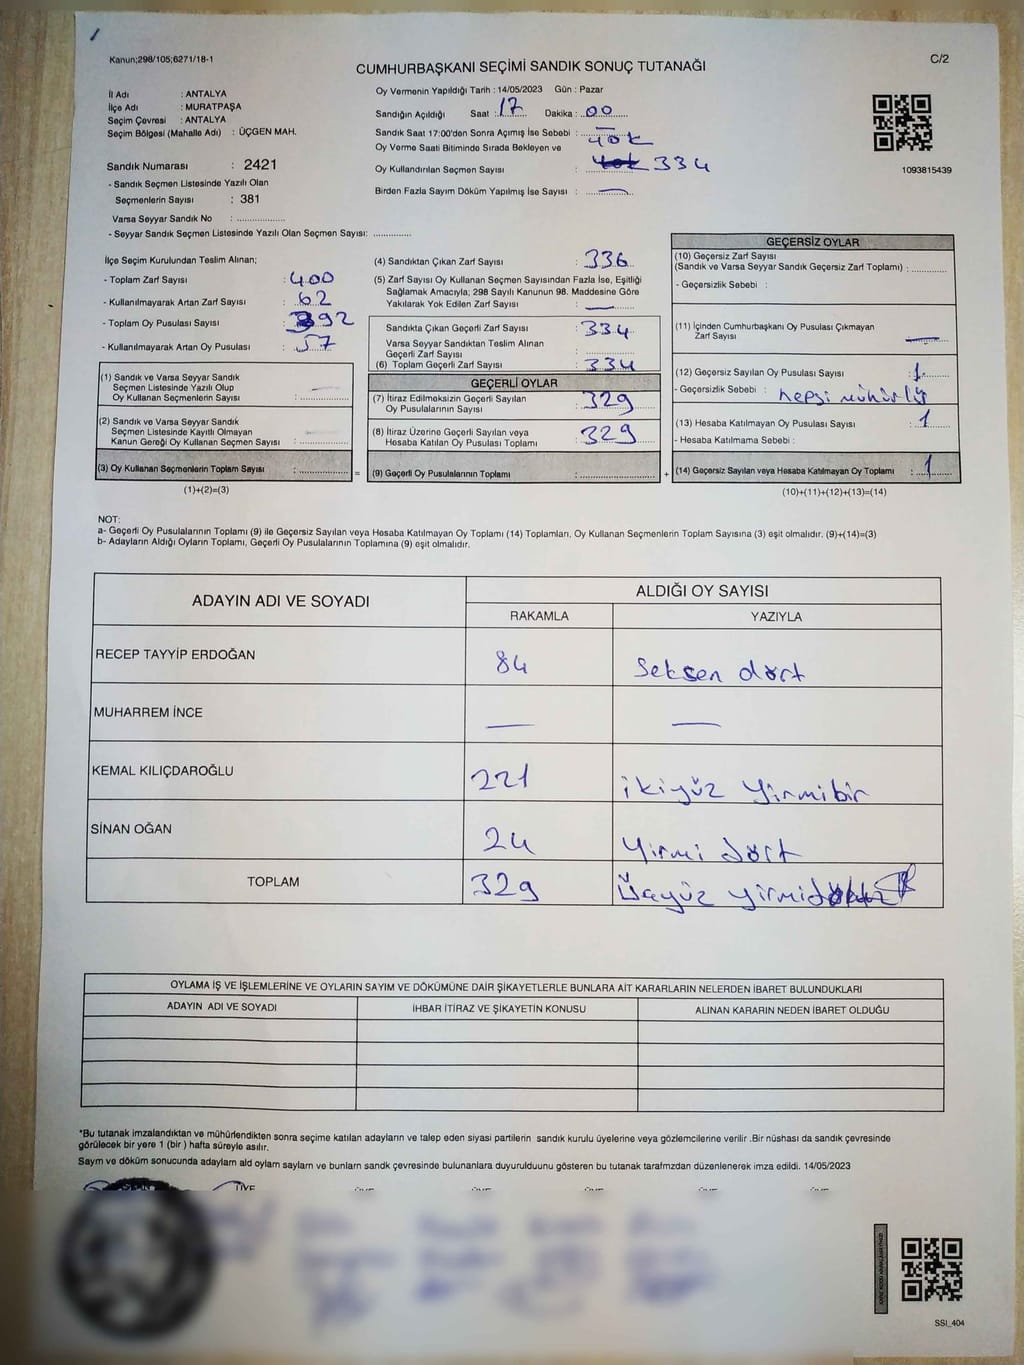 Kanun;298/105;6271/18-1
C/2
CUMHURBAŞKANI SEÇİMİ SANDIK SONUÇ TUTANAĞI
İl Adı : ANTALYA
İlçe Adı : MURATPAŞA
Seçim Çevresi : ANTALYA
Seçim Bölgesi (Mahalle Adı) : ÜÇGEN MAH.
Sandık Numarası : 2421
- Sandık Seçmen Listesinde Yazılı Olan
Seçmenlerin Sayısı : 381
Varsa Seyyar Sandık No : ................
- Seyyar Sandık Seçmen Listesinde Yazılı Olan Seçmen Sayısı: .............
Oy Vermenin Yapıldığı Tarih : 14/05/2023 Gün : Pazar
Sandığın Açıldığı Saat : 17 Dakika : 00
Sandık Saat 17:00'den Sonra Açımış İse Sebebi : —
Oy Verme Saati Bitiminde Sırada Bekleyen ve yok
Oy Kullandırılan Seçmen Sayısı : 334
Birden Fazla Sayım Döküm Yapılmış İse Sayısı : —
1093815439
İlçe Seçim Kurulundan Teslim Alınan;
- Toplam Zarf Sayısı : 400
- Kullanılmayarak Artan Zarf Sayısı : 62
- Toplam Oy Pusulası Sayısı : 392
- Kullanılmayarak Artan Oy Pusulası : 57
(1) Sandık ve Varsa Seyyar Sandık
Seçmen Listesinde Yazılı Olup
Oy Kullanan Seçmenlerin Sayısı : —
(2) Sandık ve Varsa Seyyar Sandık
Seçmen Listesinde Kayıtlı Olmayan
Kanun Gereği Oy Kullanan Seçmen Sayısı : —
(3) Oy Kullanan Seçmenlerin Toplam Sayısı : ................ =
(1)+(2)=(3)
(4) Sandıktan Çıkan Zarf Sayısı : 336
(5) Zarf Sayısı Oy Kullanan Seçmen Sayısından Fazla İse, Eşitliği
Sağlamak Amacıyla; 298 Sayılı Kanunun 98. Maddesine Göre
Yakılarak Yok Edilen Zarf Sayısı : —
Sandıkta Çıkan Geçerli Zarf Sayısı : 334
Varsa Seyyar Sandıktan Teslim Alınan
Geçerli Zarf Sayısı :
(6) Toplam Geçerli Zarf Sayısı : 334
GEÇERLİ OYLAR
(7) İtiraz Edilmeksizin Geçerli Sayılan
Oy Pusulalarının Sayısı : 329
(8) İtiraz Üzerine Geçerli Sayılan veya
Hesaba Katılan Oy Pusulası Toplamı : 329
(9) Geçerli Oy Pusulalarının Toplamı : ................ +
GEÇERSİZ OYLAR
(10) Geçersiz Zarf Sayısı
(Sandık ve Varsa Seyyar Sandık Geçersiz Zarf Toplamı) : ............
- Geçersizlik Sebebi :
(11) İçinden Cumhurbaşkanı Oy Pusulası Çıkmayan
Zarf Sayısı : —
(12) Geçersiz Sayılan Oy Pusulası Sayısı : 1
- Geçersizlik Sebebi : hepsi mühürlü
(13) Hesaba Katılmayan Oy Pusulası Sayısı : 1
- Hesaba Katılmama Sebebi :
(14) Geçersiz Sayılan veya Hesaba Katılmayan Oy Toplamı : 1
(10)+(11)+(12)+(13)=(14)
NOT:
a- Geçerli Oy Pusulalarının Toplamı (9) ile Geçersiz Sayılan veya Hesaba Katılmayan Oy Toplamı (14) Toplamları, Oy Kullanan Seçmenlerin Toplam Sayısına (3) eşit olmalıdır. (9)+(14)=(3)
b- Adayların Aldığı Oyların Toplamı, Geçerli Oy Pusulalarının Toplamına (9) eşit olmalıdır.
ADAYIN ADI VE SOYADI ALDIĞI OY SAYISI
RAKAMLA YAZIYLA
RECEP TAYYİP ERDOĞAN 84 Seksen dört
MUHARREM İNCE — —
KEMAL KILIÇDAROĞLU 221 ikiyüz yirmibir
SİNAN OĞAN 24 Yirmi dört
TOPLAM 329 Üçyüz yirmidokuz
OYLAMA İŞ VE İŞLEMLERİNE VE OYLARIN SAYIM VE DÖKÜMÜNE DAİR ŞİKAYETLERLE BUNLARA AİT KARARLARIN NELERDEN İBARET BULUNDUKLARI
ADAYIN ADI VE SOYADI İHBAR İTİRAZ VE ŞİKAYETİN KONUSU ALINAN KARARIN NEDEN İBARET OLDUĞU
*Bu tutanak imzalandıktan ve mühürlendikten sonra seçime katılan adayların ve talep eden siyasi partilerin sandık kurulu üyelerine veya gözlemcilerine verilir .Bir nüshası da sandık çevresinde
görülecek bir yere 1 (bir ) hafta süreyle asılır.
Sayım ve döküm sonucunda adaylarn ald oylarn saylarn ve bunlarn sandk çevresinde bulunanlara duyurulduunu gösteren bu tutanak tarafmzdan düzenlenerek imza edildi. 14/05/2023
SSI_404